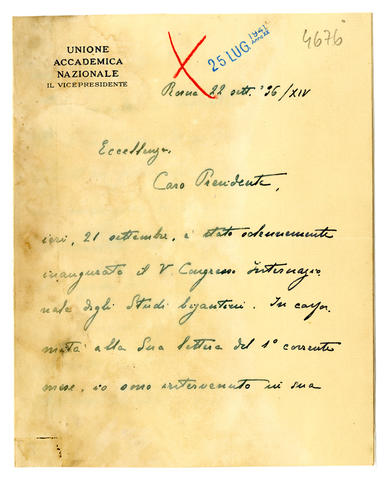 UNIONE
ACCADEMICA
NAZIONALE
IL VICEPRESIDENTE
25 LUG. 1941
4676
Roma 22 sett. '36/XIV
Eccellenza,
Caro Presidente,
ieri, 21 settembre, è stato solennemente
inaugurato il V Congresso Internazio
nale degli Studi bizantini. In confor
mità alla Sua lettera del 1° corrente
mese, io sono intervenuto in sua